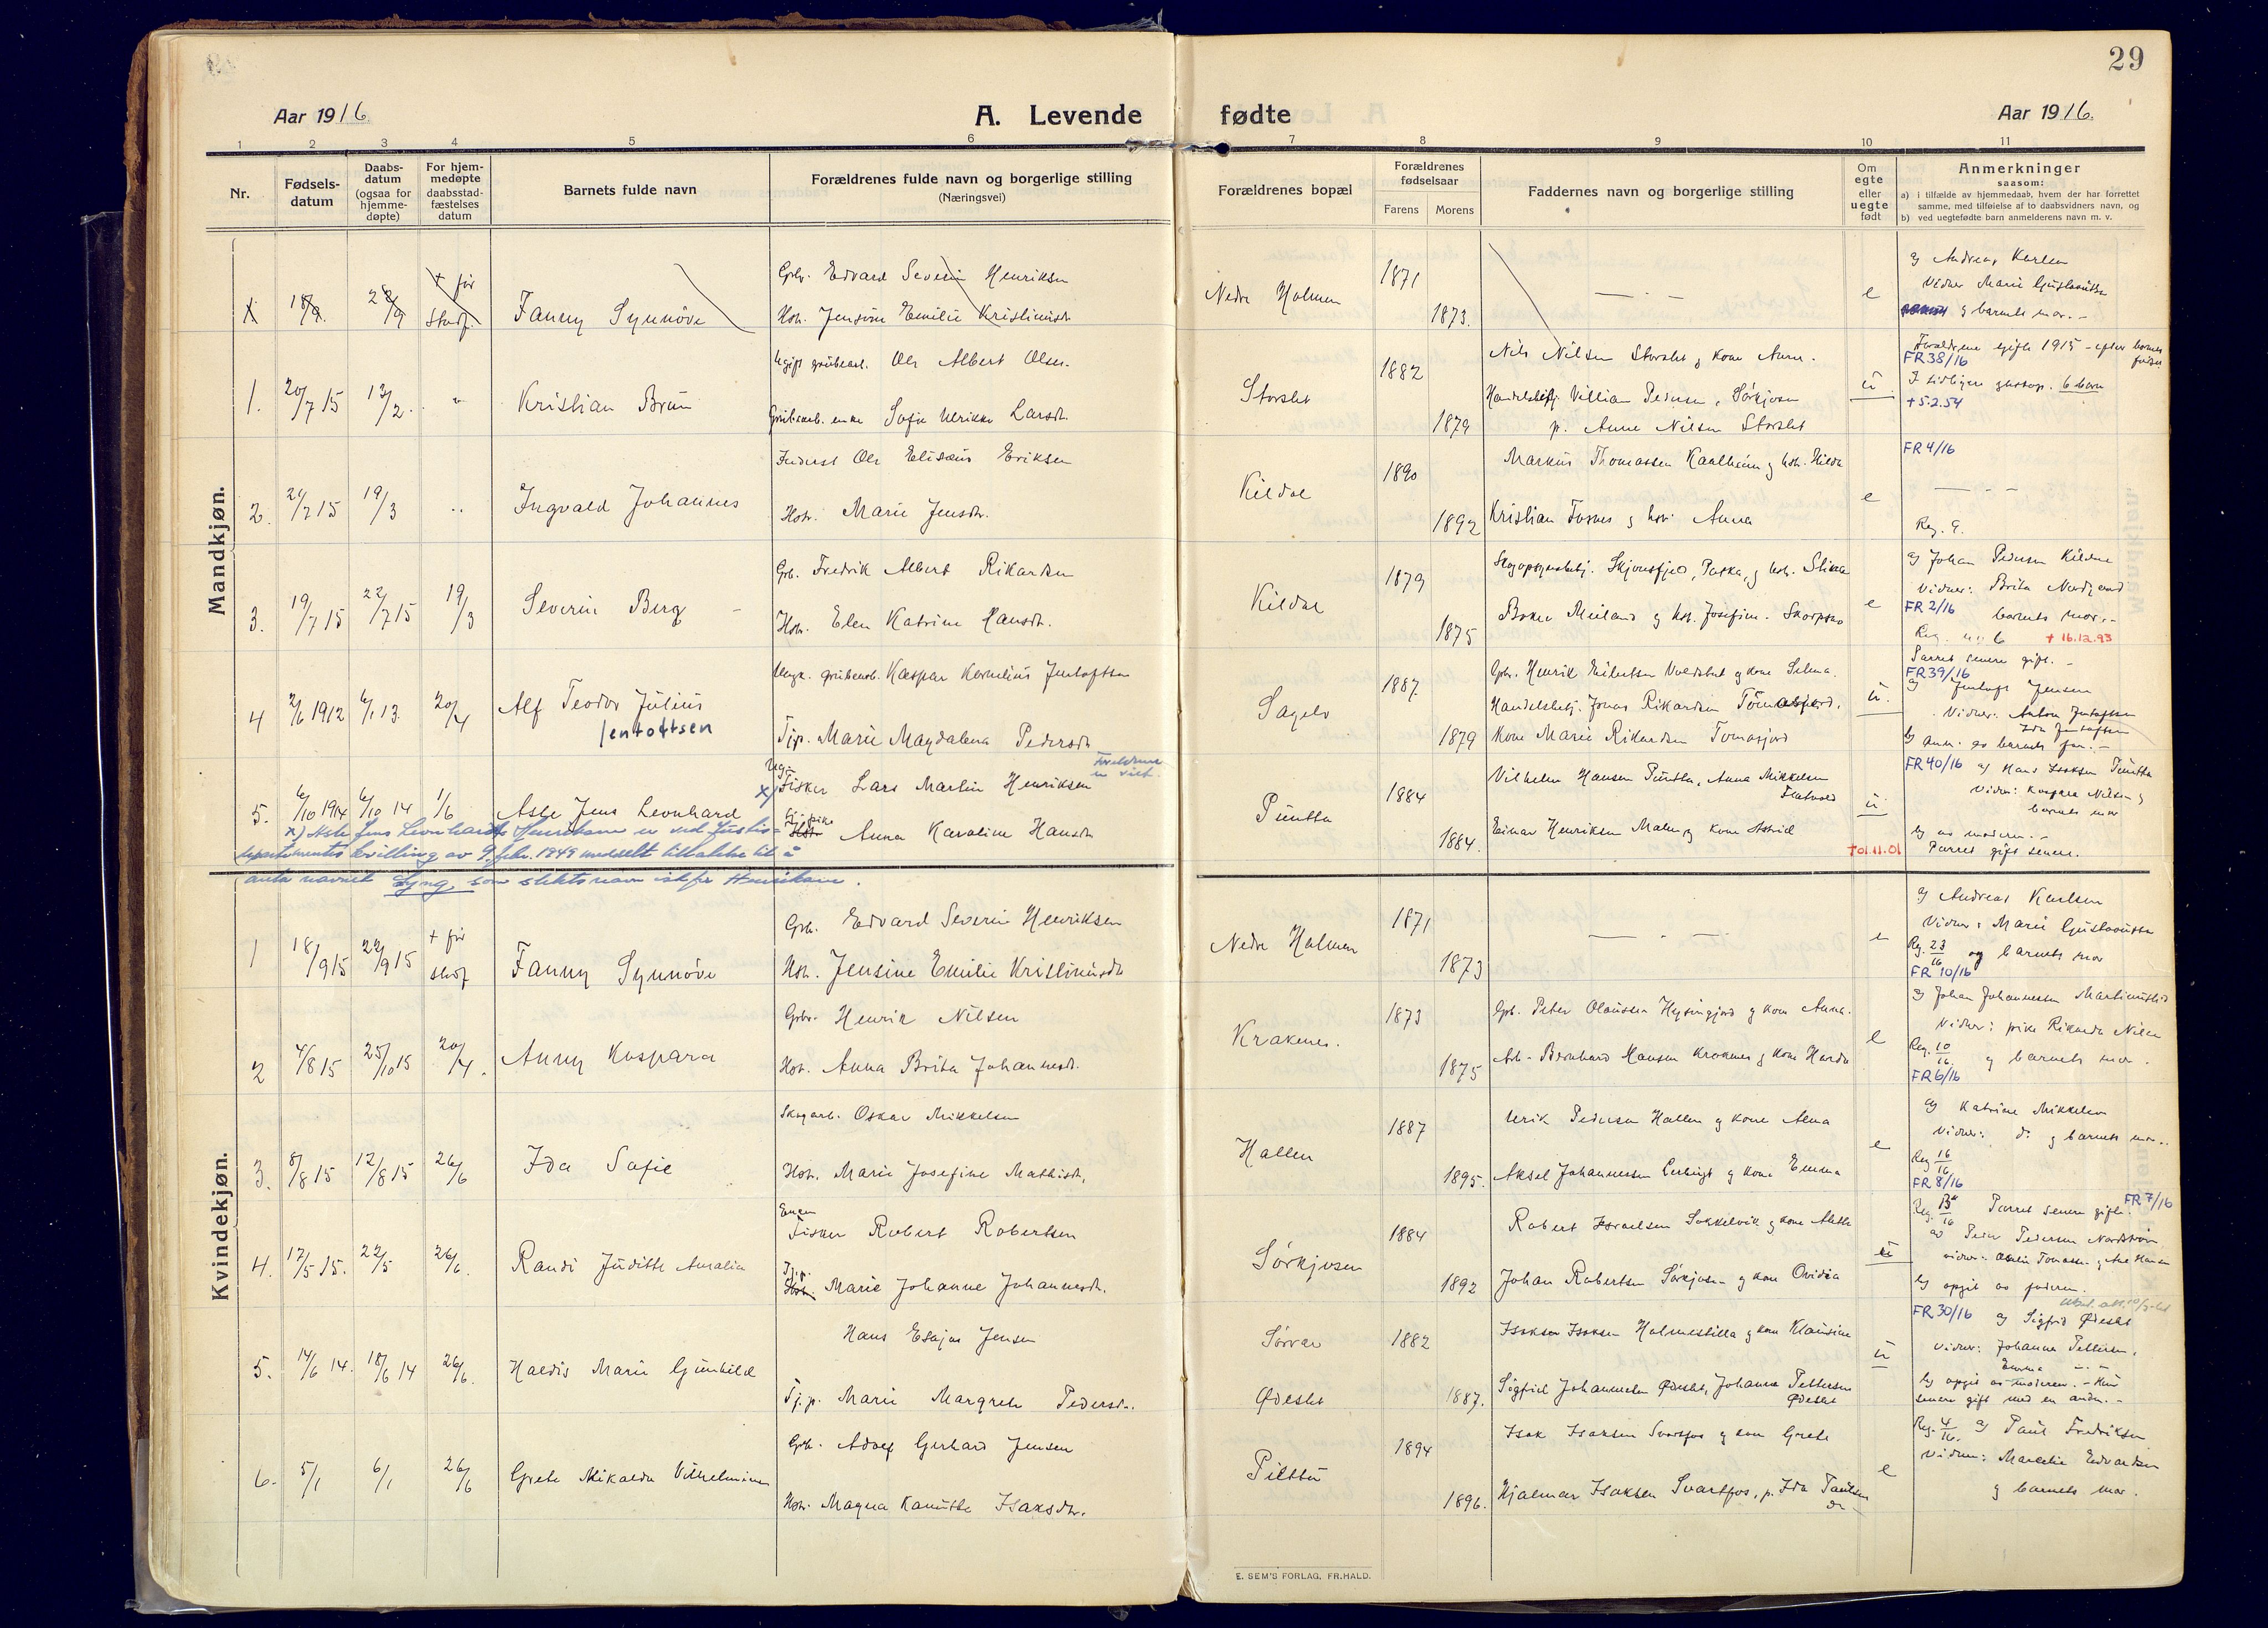 29
Aar 1916.
A. Levende fødte
Aar 1916.
1 2 3 4 5 6 7 8 9 10 11
Nr.
Fødsels-datum
Daabs-datum (ogsaa for hjemme-døpte)
For hjem-medøpte daabsstad-fæstelses datum
Barnets fulde navn
Forældrenes fulde navn og borgerlige stilling
(Næringsvei)
Forældrenes bopæl
Forældrenes fødselsaar
Farens Morens
Faddernes navn og borgerlige stilling
Om egte eller uegte født
Anmerkninger
saasom:
a) i tilfælde av hjemmedaab, hvem der har forrettet
samme, med tilføielse af to daabsvidners navn, og
b) ved uegtefødte barn anmelderens navn m. v.
Mandkjøn.
Grb. Edvard Severin Henriksen 1871 a) Andreas Karlsen
18/9. 28/9 + før stadf. Fanny Synnöve Nedre Holmen e
Vidner Marie Gustavsen
Hst. Jensine Emilie Kristiansdt. 1873. og barnets mor.-
Ugift grubearb. Ole Albert Olsen. 1882 Nils Nilsen Storslet og kone Anne.
Forældrene gifte 1915 - efter barnets fødsel
FR 38/16
1. 20/7 15 13/2. " Kristian Brun Storslet Handelsbetj. Villiam Pedersen, Sørkjosen u.
I tidligere egteskap. 6 barn
+ 5.2.54
Grubearb. enke Sofie Ulrikke Larsdt. 1879 p. Anne Nilsen Storslet
Inderst Ole Elisæus Eriksen 1890 Markus Thomassen Kaalheim og hst. Hilda FR 4/16
2. 21/7 15 19/3 " Ingvald Johannes Kildal e
Hst. Marie Jensdt. 1892 Kristian Fosnes og hst. Anna Reg. 9.
Grb. Fredrik Albert Rikardsen 1879
a) Johan Pedersen Kildal
3. 19/7 15 22/7 15 19/3 Severin Berg Kildal e
Vidner: Brita Nordgaard
FR 2/16 barnets mor.-
Hst. Elen Katrine Hansdt. 1875 og hst. Josefine. Skorpen
Reg. nr. 6 + 16.12.93
Ungk. grubearb. Kaspar Kornelius Jentoftsen 1887. Gbr. Henrik Eilertsen Voldstad og kone Selma.
Parret senere gift. -
FR 39/16
4 2/6 1912 6/1 13. 20/4 Alf Teodor Julius Jentoftsen Sagelv Handelsbetj. Jonas Rikardsen Tomasjord, u.
a) Jentoft Jensen
Vidner: Anton Jentoftsen
Ida Jentoftsen
Tjp. Marie Magdalena Pedersdt 1879 Kone Marie Rikardsen Tomasjord
b) Anm. av barnets far. -
Forældrene er viet.
Ug. Fisker Lars Martin Henriksen 1884 Vilhelm Hansen Puntta, Anna Mikkelsen Flatvold
FR 40/16 a) Hans Isaksen Puntta
5. 6/10 1914 6/10 14 1/6 Asle Jens Leonhard x) Puntta u
Vidner: Kaspara Nilsen og
barnets mor
Tj.pike Anna Karoline Hansdt 1884. Einar Henriksen Malen og kone Astrid + 01.11.01
b) av moderen. -
Parret gift senere.
x) Asle Jens Leonhard Henriksen er ved Justis-
departementets bevilling av 9. febr. 1949 meddelt tillatelse til å
anta navnet Lyng som slektsnavn istf. for Henriksen.
Kvindekjøn.
Grb. Edvard Severin Henriksen 1871 a) Andreas Karlsen
1 18/9 15 22/9 15 + før stadf Fanny Synnöve Nedre Holmen e
Vidner: Marie Gustavsen
Reg. 23/16 og barnets mor
FR 10/16
Hst. Jensine Emilie Kristiansdt 1873
Grbr. Henrik Nilsen 1873 Grb. Peter Olaussen Hysingjord og kone Anna.
a) Johan Johannessen Martinuslid
2 4/8 15 25/10 15 20/4. Anny Kaspara Krakenes. e
Vidner: pike Rikarda Nilsen
Reg. 10/16. og barnets mor.
FR 6/16
Hst. Anna Brita Johannesdt. 1875 Arb. Bernhard Hansen Kraknes og kone Harda
Skogarb. Oskar Mikkelsen 1887 Ulrik Pedersen Hallen og kone Alma
a) Katrine Mikkelsen
3. 8/8 15 12/8 15 26/6 Ida Sofie Hallen e
Vidner: do og barnets mor..
Reg 16/16
FR 8/16
Hst. Marie Josefine Mathisdt. 1895. Aksel Johannessen og kone Emma
Enkem. Fisker Robert Robertsen 1884 Robert Israelsen Sokkelvik og kone Alette
Reg. 13/16 Parret senere gifte. FR 7/16
4. 17/5 15. 22/5 26/6. Randi Judith Amalia Sørkjosen u
a) Peder Pedersen Nordstrøm
Tj.p. Marie Johanne Johannesdt. 1892 Johan Robertsen Sørkjosen og kone Ovidia
b) opgit av faderen.
Hans Esajas Jensen Sørvær 1882 Isaksen Isaksen Holmestilla og kone Klausine
FR 30/16 a) Sigfrid Ødeslet
5. 14/6 14. 18/6 14 26/6. Haldis Marie Gunhild u
Vidner: Johanna Pettersen,
Emma " "
Tj.p. Marie Margrete Pedersdt. Ødeslet 1887. Sigfrid Johannesen Ødeslet, Johanna Pettersen Ødeslet
b) opgit av moderen. - Hun
senere gift med en anden. -
Grb. Adolf Gerhard Jensen 1894 Isak Isaksen Svartfos og kone Grete
Reg. 4/16. a) Paul Fredriksen
6. 5/1 6/1 26/6 Grete Mikalda Vilhelmine Piltto e
Vidner: Marselie Edvardsen
Hst. Magna Kanutte Isaksdt. 1896. Hjalmar Isaksen Svartfos, p. Ida Paulsen do
og barnets mor.
E. SEM'S FORLAG, FR.HALD.